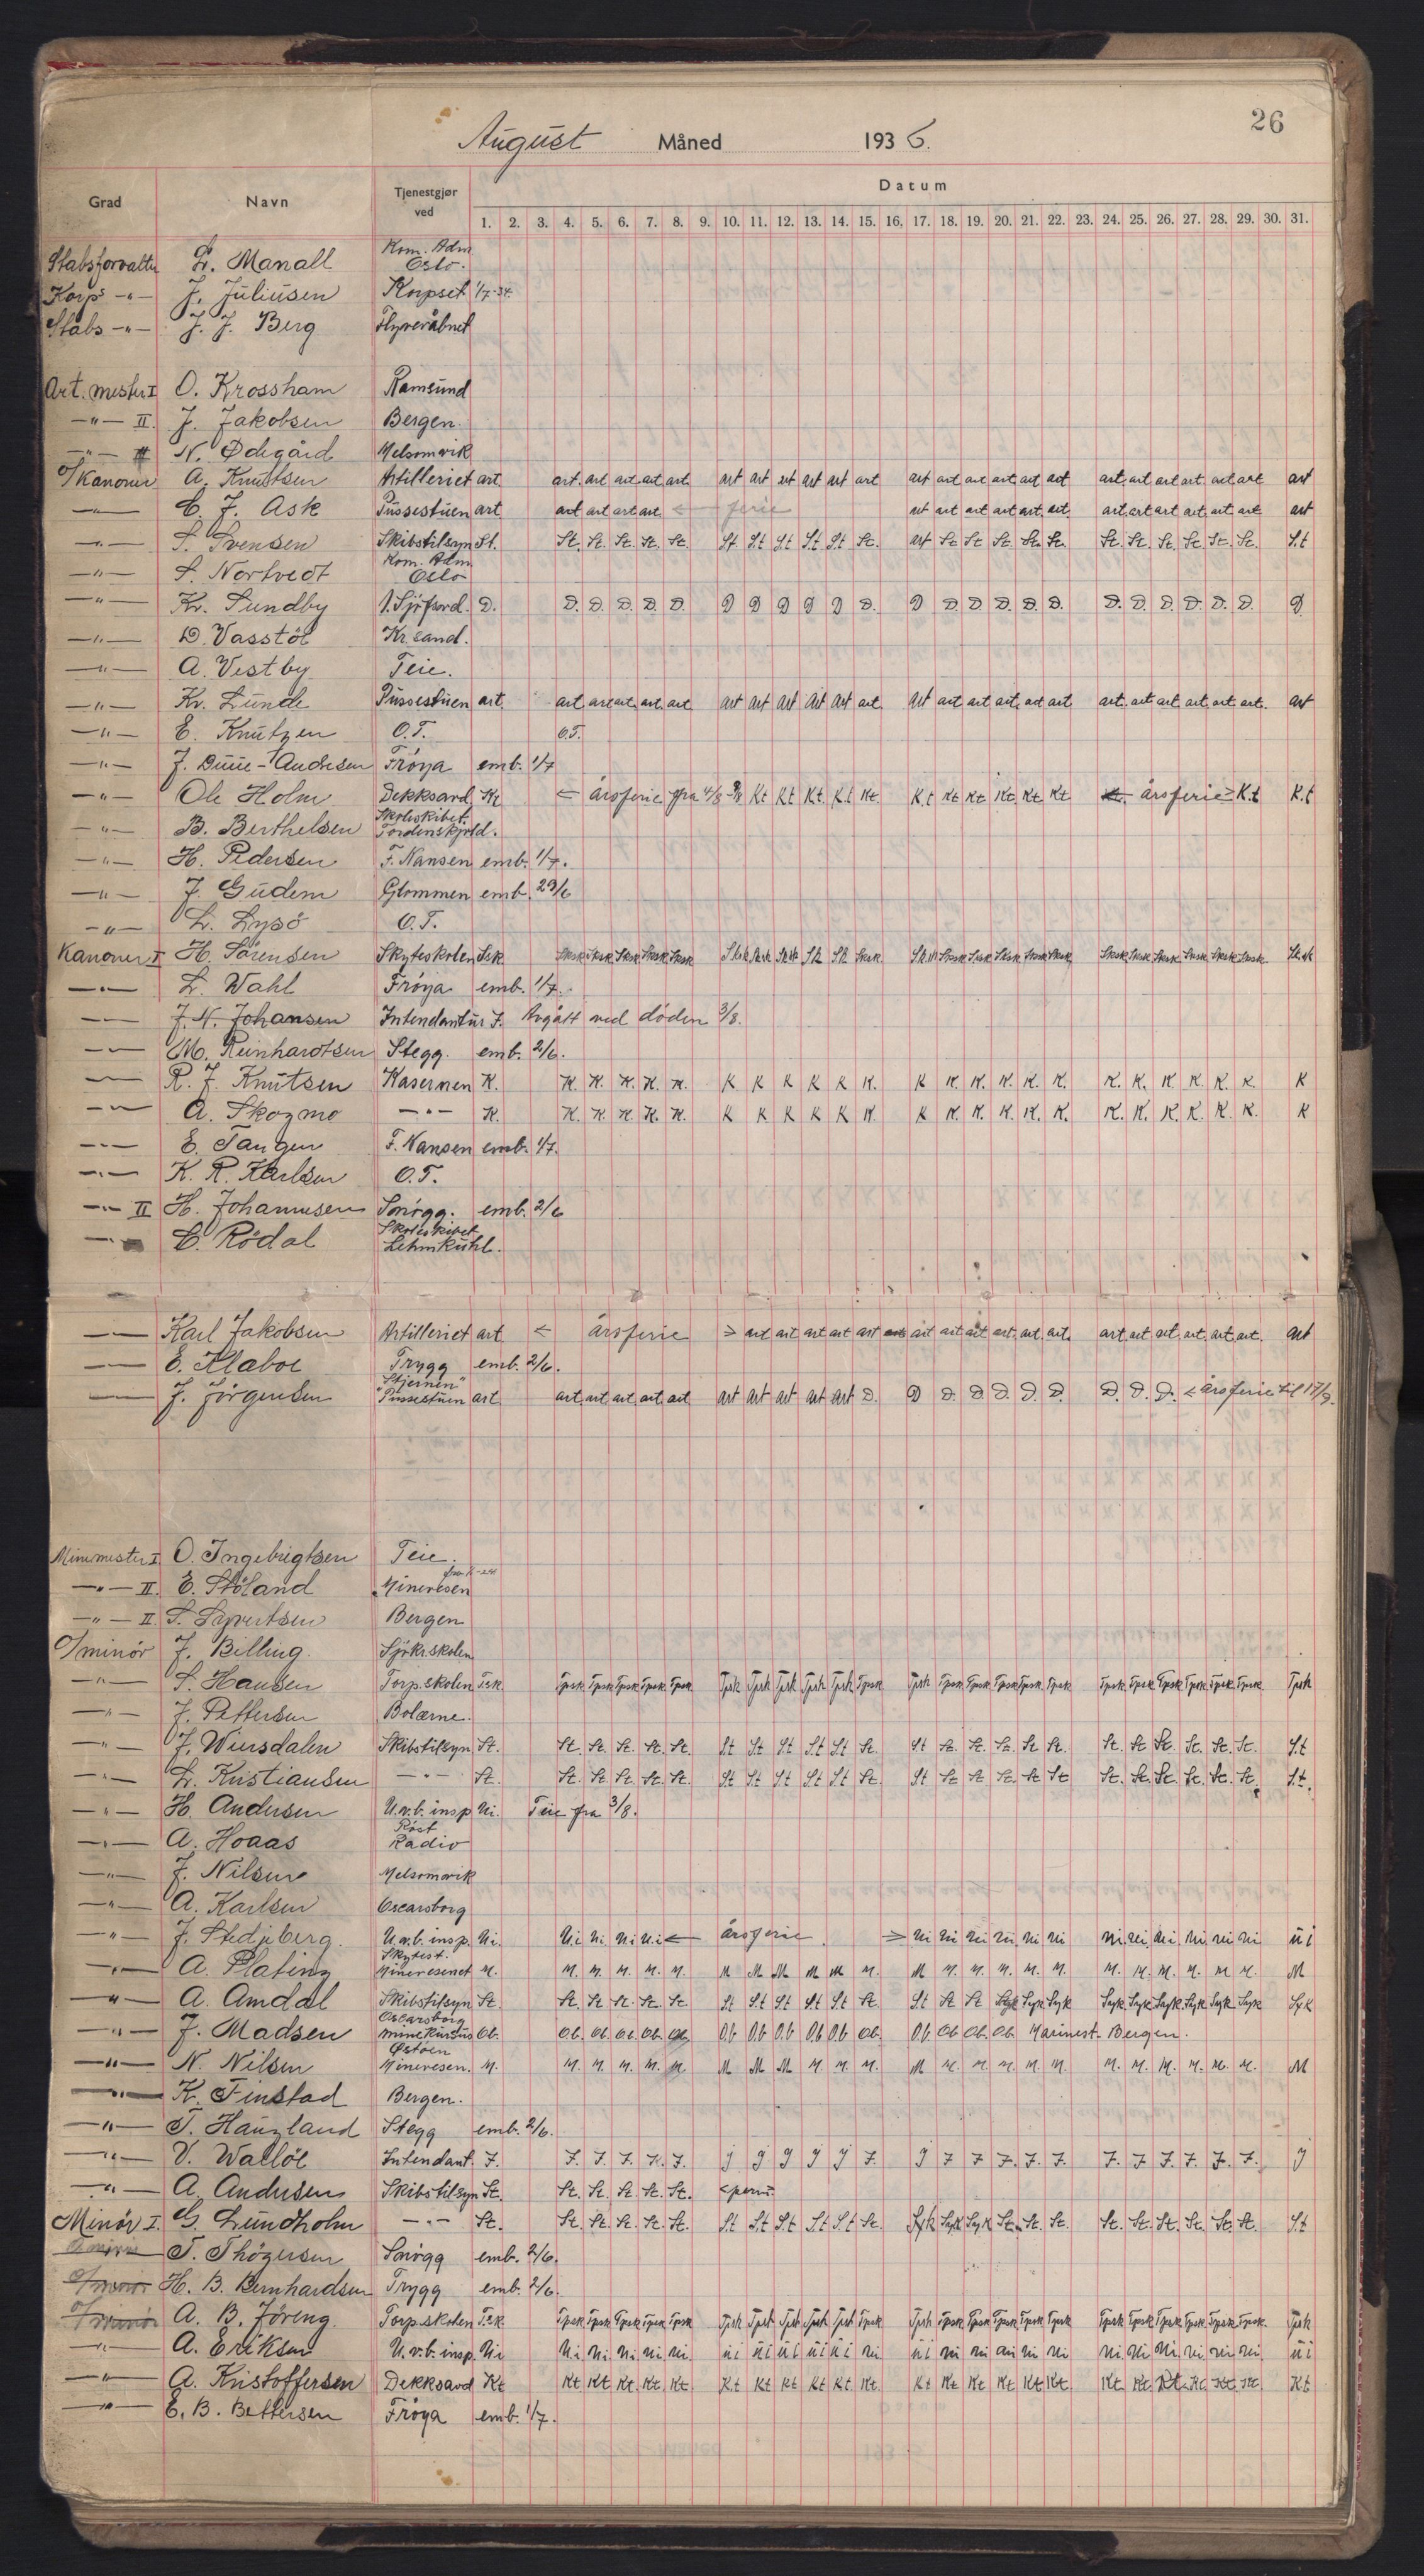 26
August Måned 1936.
Grad Navn Tjenestgjør ved Datum
1. 2. 3. 4. 5. 6. 7. 8. 9. 10. 11. 12. 13. 14. 15. 16. 17. 18. 19. 20. 21. 22. 23. 24. 25. 26. 27. 28. 29. 30. 31.
Stabsforvalter L. Manall Kom. Adm Oslo.
Korps -"- J. Juliusen Korpset 1/7-34.
Stabs -"- J. J. Berg Flyveråbnet
Art. mester I O. Krossham Ramsund
-"- II. J. Jakobsen Bergen.
-"- II N. Ødegård Melsomvik
O/Kanoner A. Knutsen Artilleriet art. art. art. art. art. art. art art art art art art art art art art art art art. art art art. art art art
-"- C. J. Ask Pussestuen art art art art art. ← ferie art art art art art. art. art. art. art art. art. art art
-"- S. Svensen Skibstilsyn St. St. St. St. St. St. St. St St St St St. art St St St. St. St. St. St. St. St. St. St. St
-"- S. Nortvedt Kom. Adm Oslo
-"- Kr. Sundby D. D. D. D. D. D. D D D D D D. D D. D. D. D. D. D. D. D. D. D. D. D
-"- D. Vasstöl Kr.sand.
-"- A. Vestby Teie.
-"- Kr. Lunde Pussestuen art. art art art. art. art art art art art art art. art art art art. art art art. art art art. art art. art
-"- E. Knutzen O.T. O.T.
-"- J. Duue-Andresen Fröya emb. 1/7
-"- Ole Holm Dekksavd Kt ← årsferie fra 4/8 - 9/8 Kt Kt Kt. Kt Kt. Kt Kt Kt. Kt. Kt. Kt Kt. årsferie → Kt Kt
-"- B. Berthelsen Skoleskibet. Tordenskjold.
-"- H. Pedersen F. Nansen emb. 1/7.
-"- J. Gudem Glommen emb. 29/6
-"- L. Lysö O.T.
Kanoner I H. Sörensen Skyteskolen Ssk Sksk Sksk Sksk Sksk Sksk Sksk Sksk Sksk Sk Sk Sksk Sksk Sksk Sksk Sksk Sksk Sksk Sksk Sksk Sksk Sksk Sksk Sksk Sksk
-"- L. Wahl Fröya emb. 1/7.
-"- J. N. Johansen Intendantur J. Avgått ved döden 3/8.
-"- M. Reinhardtsen Stegg. emb. 2/6.
-"- R. J. Knutsen Kasernen K. K. K. K. K. K. K K K K K K. K K. K. K. K. K. K. K. K K. K. K. K
-"- A. Skogmo -"- K. K. K. K. K. K. K K K K K K. K K. K. K. K. K. K. K. K. K. K. K. K
-"- E. Tangen F. Nansen emb. 1/7.
-"- K. R. Karlsen O.T.
-"- II H. Johannesen Snögg. emb. 2/6
-"- C. Rödal Skoleskibet Lehmkuhl.
-"- Karl Jakobsen Artilleriet art ← årsferie → art art art art art art art art art. art art. art. art art. art. art. art. art
-"- E. Klaboe Trygg emb. 2/6.
-"- J. Jörgensen "Stjernen" Pussestuen art art. art. art. art. art art art art art art D. D D. D D. D. D. D. D. D. ← årsferie til 17/9.
Minemester I O. Ingebrigtsen Teie.
-"- II. E. Stöland Minevesen
-"- II. S. Syvertsen Bergen
O/minör J. Billing Sjökr.skolen
-"- S. Hansen Torp.skolen Tsk. Tpsk Tpsk Tpsk Tpsk Tpsk Tpsk Tpsk Tpsk Tpsk Tpsk Tpsk Tpsk Tpsk Tpsk Tpsk Tpsk Tpsk Tpsk Tpsk Tpsk Tpsk Tpsk Tpsk Tpsk
-"- J. Pettersen Bolærne.
-"- J. Wiersdalen Skibstilsyn St. St. St. St. St. St. St St St St St St. St St. St. St. St St. St. St St. St. St. St. St
-"- L. Kristiansen -"- St. St. St. St. St. St. St St St St St St. St St St St. St St St. St. St. St. St. St. St.
-"- H. Andersen U.v.b. insp Ui. Teie fra 3/8.
-"- A. Hoaas Röst Radio
-"- J. Nilsen Melsomvik
-"- A. Karlsen Oscarsborg
-"- J. Stedjeberg. U.v.b. insp. Ui. Ui Ui. Ui Ui ← årsferie. → Ui Ui Ui Ui Ui Ui Ui. Ui. Ui. Ui. Ui Ui Ui
-"- A. Plating Skytest. Minevesenet M. M. M. M. M. M. M M M M M M. M M. M. M. M. M. M. M. M. M. M M. M
-"- A. Amdal Skibstilsyn St. St. St St. St. St. St St St St St St. St St St Syk Syk Syk Syk Syk Syk Syk Syk Syk Syk
-"- J. Madsen Oscarsborg minekursus Ob. Ob. Ob. Ob. Ob. Ob Ob Ob Ob Ob Ob Ob. Ob Ob Ob. Ob Marinest. Bergen.
-"- N. Nilsen Østöen Minevesen. M. M. M. M. M. M. M M M M. M. M. M M. M. M. M. M. M. M. M. M. M. M. M
-"- K. Finstad Bergen.
-"- T. Haugland Stegg emb. 2/6.
-"- V. Wallöe Intendant. J. J. J. J. J. J. J J J J J J. J J J J. J. J. J. J J J. J. J. J
-"- A. Andersen Skibstilsyn St. St. St. St. St. St. ← perm.
Minör I. G. Lundholm -"- St. St. St. St. St. St. St St St St St St. Syk Syk Syk St. St. St. St. St. St. St. St. St. St
T. Thögersen Snögg emb. 2/6.
H. B. Bernhardsen Trygg emb. 2/6.
A. B. Jöreng Torp.skolen Tsk Tpsk Tpsk Tpsk Tpsk Tpsk Tpsk Tpsk Tpsk Tpsk Tpsk Tpsk Tpsk Tpsk Tpsk Tpsk Tpsk Tpsk Tpsk Tpsk Tpsk Tpsk Tpsk Tpsk. Tpsk
-"- A. Eriksen U.v.b. insp. Ui Ui. Ui. Ui. Ui Ui. Ui Ui Ui Ui Ui Ui. Ui Ui Ui Ui Ui Ui Ui. Ui Ui. Ui Ui Ui. Ui
-"- A. Kristoffersen Dekksavd Kt Kt Kt Kt. Kt. Kt Kt Kt Kt Kt Kt. Kt. Kt Kt Kt Kt Kt Kt Kt Kt. Kt. Kt. Kt. Kt. Kt
-"- E. B. Bettersen Fröya emb. 1/7.